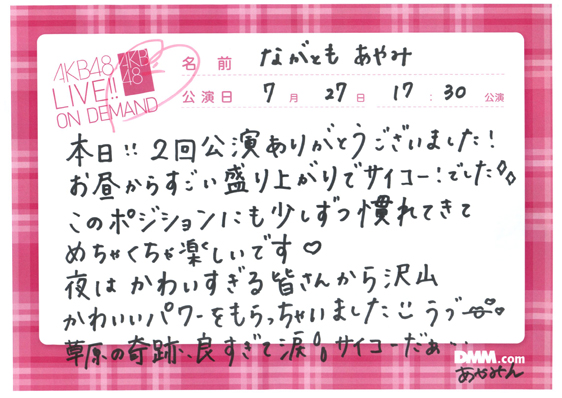 AKB48
LIVE!!
ON DEMAND
AKB
48
名前 ながとも あやみ
公演日 7月 27日 17:30 公演
本日!! 2回公演ありがとうございました!
お昼からすごい盛り上がりでサイコー!でした
このポジションにも少しずつ慣れてきて
めちゃくちゃ楽しいです♡
夜は かわいすぎる皆さんから沢山
かわいいパワーをもらっちゃいました うう
草原の奇跡、良すぎて涙 サイコーだぁ
DMM.com
あやみん